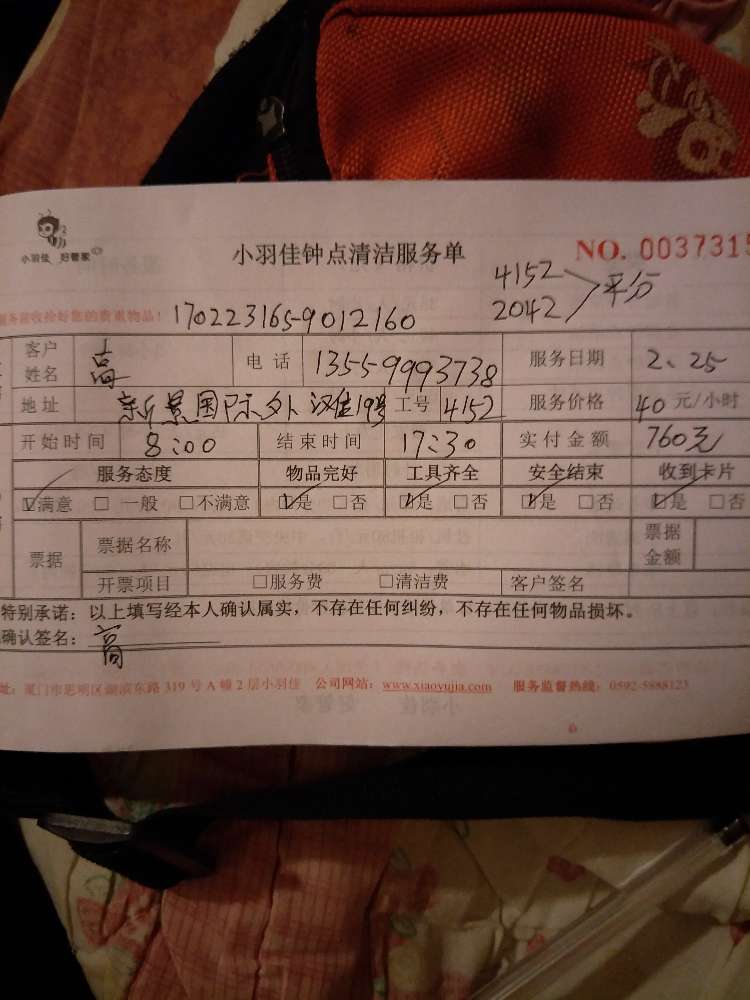 小羽佳 好管家
小羽佳钟点清洁服务单
NO. 0037315
4152
2042 平分
服务前收拾好您的贵重物品！
170223165-9012160
客户姓名 高 电话 13559993738 服务日期 2、25
地址 新景国际外 汉佳19号 工号 4152 服务价格 40 元/小时
开始时间 8:00 结束时间 17:30 实付金额 760元
服务态度 物品完好 工具齐全 安全结束 收到卡片
☑满意 □ 一般 □不满意 ☑是 □否 ☑是 □否 ☑是 □否 ☑是 □否
票据 票据名称 票据金额
开票项目 □服务费 □清洁费 客户签名
特别承诺：以上填写经本人确认属实，不存在任何纠纷，不存在任何物品损坏。
确认签名：高
址：厦门市思明区湖滨东路 319 号 A 幢 2 层小羽佳 公司网站：www.xiaoyujia.com 服务监督热线：0592-5888123